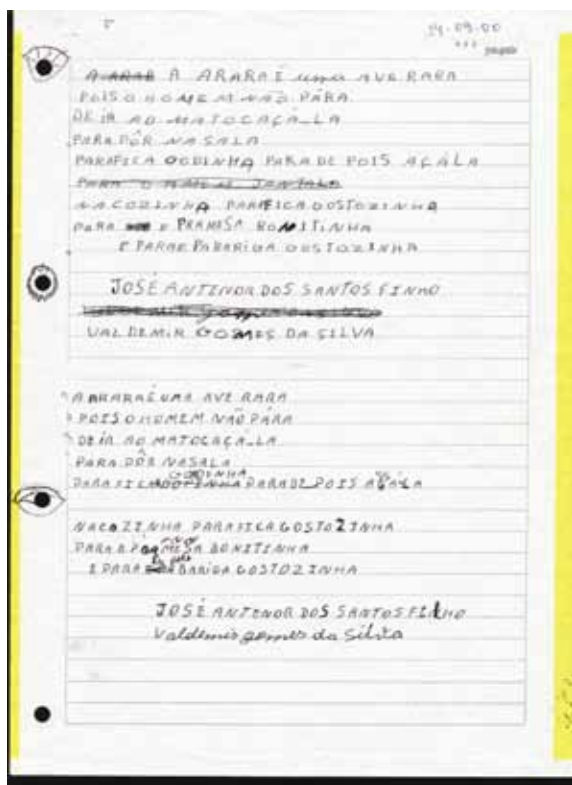 14-09-00
A ARARA É uma AVE RARA
POIS O HOMEM NÃO PÁRA
DE IR AO MATO CAÇÁ-LA
PARA PÔR NA SALA
PARAFICA GODINHA PARA DE POIS AÇÁLA
NA COZINHA PARAFICA GOSTOZINHA
PARA E PRAMESA BONITINHA
E PARAE PABARIGA GOSTOZINHA
JOSÉ ANTENOR DOS SANTOS FINHO
VALDEMIR GOMES DA SILVA
A ARARA É UMA AVE RARA
POIS O HOMEM NÃO PÁRA
DE IR AO MATO CAÇÁ-LA
PARA PÔR NA SALA
PARA FICA GODINHA PARA DE POIS
NA COZINHA PARA FICA GOSTOZINHA
PARA MESA BONITINHA
E PARA BARIGA GOSTOZINHA
JOSÉ ANTENOR DOS SANTOS FILHO
Valdemir gomes da Silva